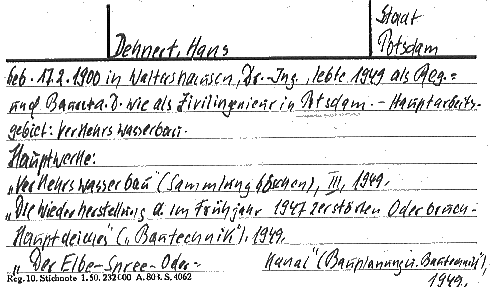 Staat
Dehnert, Hans Potsdam
geb. 17.2.1900 in Waltershausen, Dr.-Ing., lebte 1949 als Reg.=
und Baurat a.D. wie als Zivilingenieur in Potsdam. – Hauptarbeits-
gebiet: Verkehrswasserbau.
Hauptwerke:
„Verkehrswasserbau" (Sammlung Göschen), III, 1949.
„Die Wiederherstellung d. im Frühjahr 1947 zerstörten Oderbruch-
Hauptdeiches" („Bautechnik"). 1949.
„Der Elbe-Spree-Oder- Kanal" (Bauplanung u. Bautechnik"),
Reg. 10. Stichnote 1. 50. 232000 A. 803. S. 4062 1949.